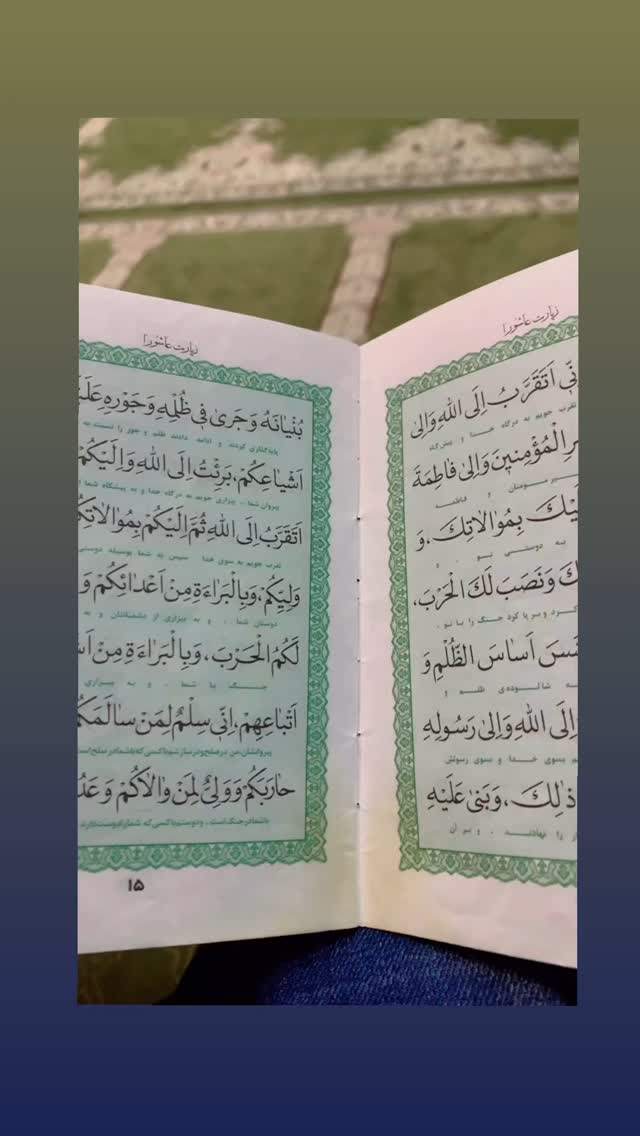 زیارت عاشورا
اَتَقَرَّبُ اِلَی اللهِ وَاِلیٰ
تقرب جویم به درگاه خدا و
الْمُؤْمِنینَ وَاِلیٰ فاطِمَةَ
مومنان و فاطمه
بِمُوٰالاتِكَ، وَ
به دوستی تو . و
وَنَصَبَ لَكَ الْحَرْبَ،
کرد و برپا کرد جنگ را با تو .
اَسٰاسَ الظُّلْمِ وَ
شالوده‌ی ظلم و
اِلَی اللهِ وَاِلیٰ رَسُولِهِ
بسوی خدا و بسوی رسولش
ذٰلِكَ، وَبَنیٰ عَلَیْهِ
را نهادند . و بر آن
زیارت عاشورا
بُنْیٰانَهُ وَجَریٰ فی ظُلْمِهِ وَجَوْرِهِ
پایه‌گذاری کردند و ادامه دادند ظلم و جور را نسبت به
اَشْیٰاعِكُمْ، بَرِئْتُ اِلَی اللهِ وَاِلَیْكُمْ
پیروان شما ، بیزاری جویم به درگاه خدا و به پیشگاه شما
اَتَقَرَّبُ اِلَی اللهِ ثُمَّ اِلَیْكُمْ بِمُوٰالاتِكُمْ
تقرب جویم به سوی خدا سپس به شما بوسیله دوستی
وَلِیِّكُمْ، وَبِالْبَرٰاءَةِ مِنْ اَعْدٰائِكُمْ وَ
دوستان شما . و به بیزاری از دشمنانتان و به
لَكُمُ الْحَرْبَ، وَبِالْبَرٰاءَةِ مِنْ
جنگ با شما . و به بیزاری
اَتْبٰاعِهِمْ، اِنّی سِلْمٌ لِمَنْ سٰالَمَكُمْ
پیروانشان، من در صلح و در سازشم با کسی که با شما در صلح است
حٰارَبَكُمْ وَوَلِیٌّ لِمَنْ وٰالاٰكُمْ وَ
با شما در جنگ است . و دوستم با کسی که شما را دوست دارد
۱۵